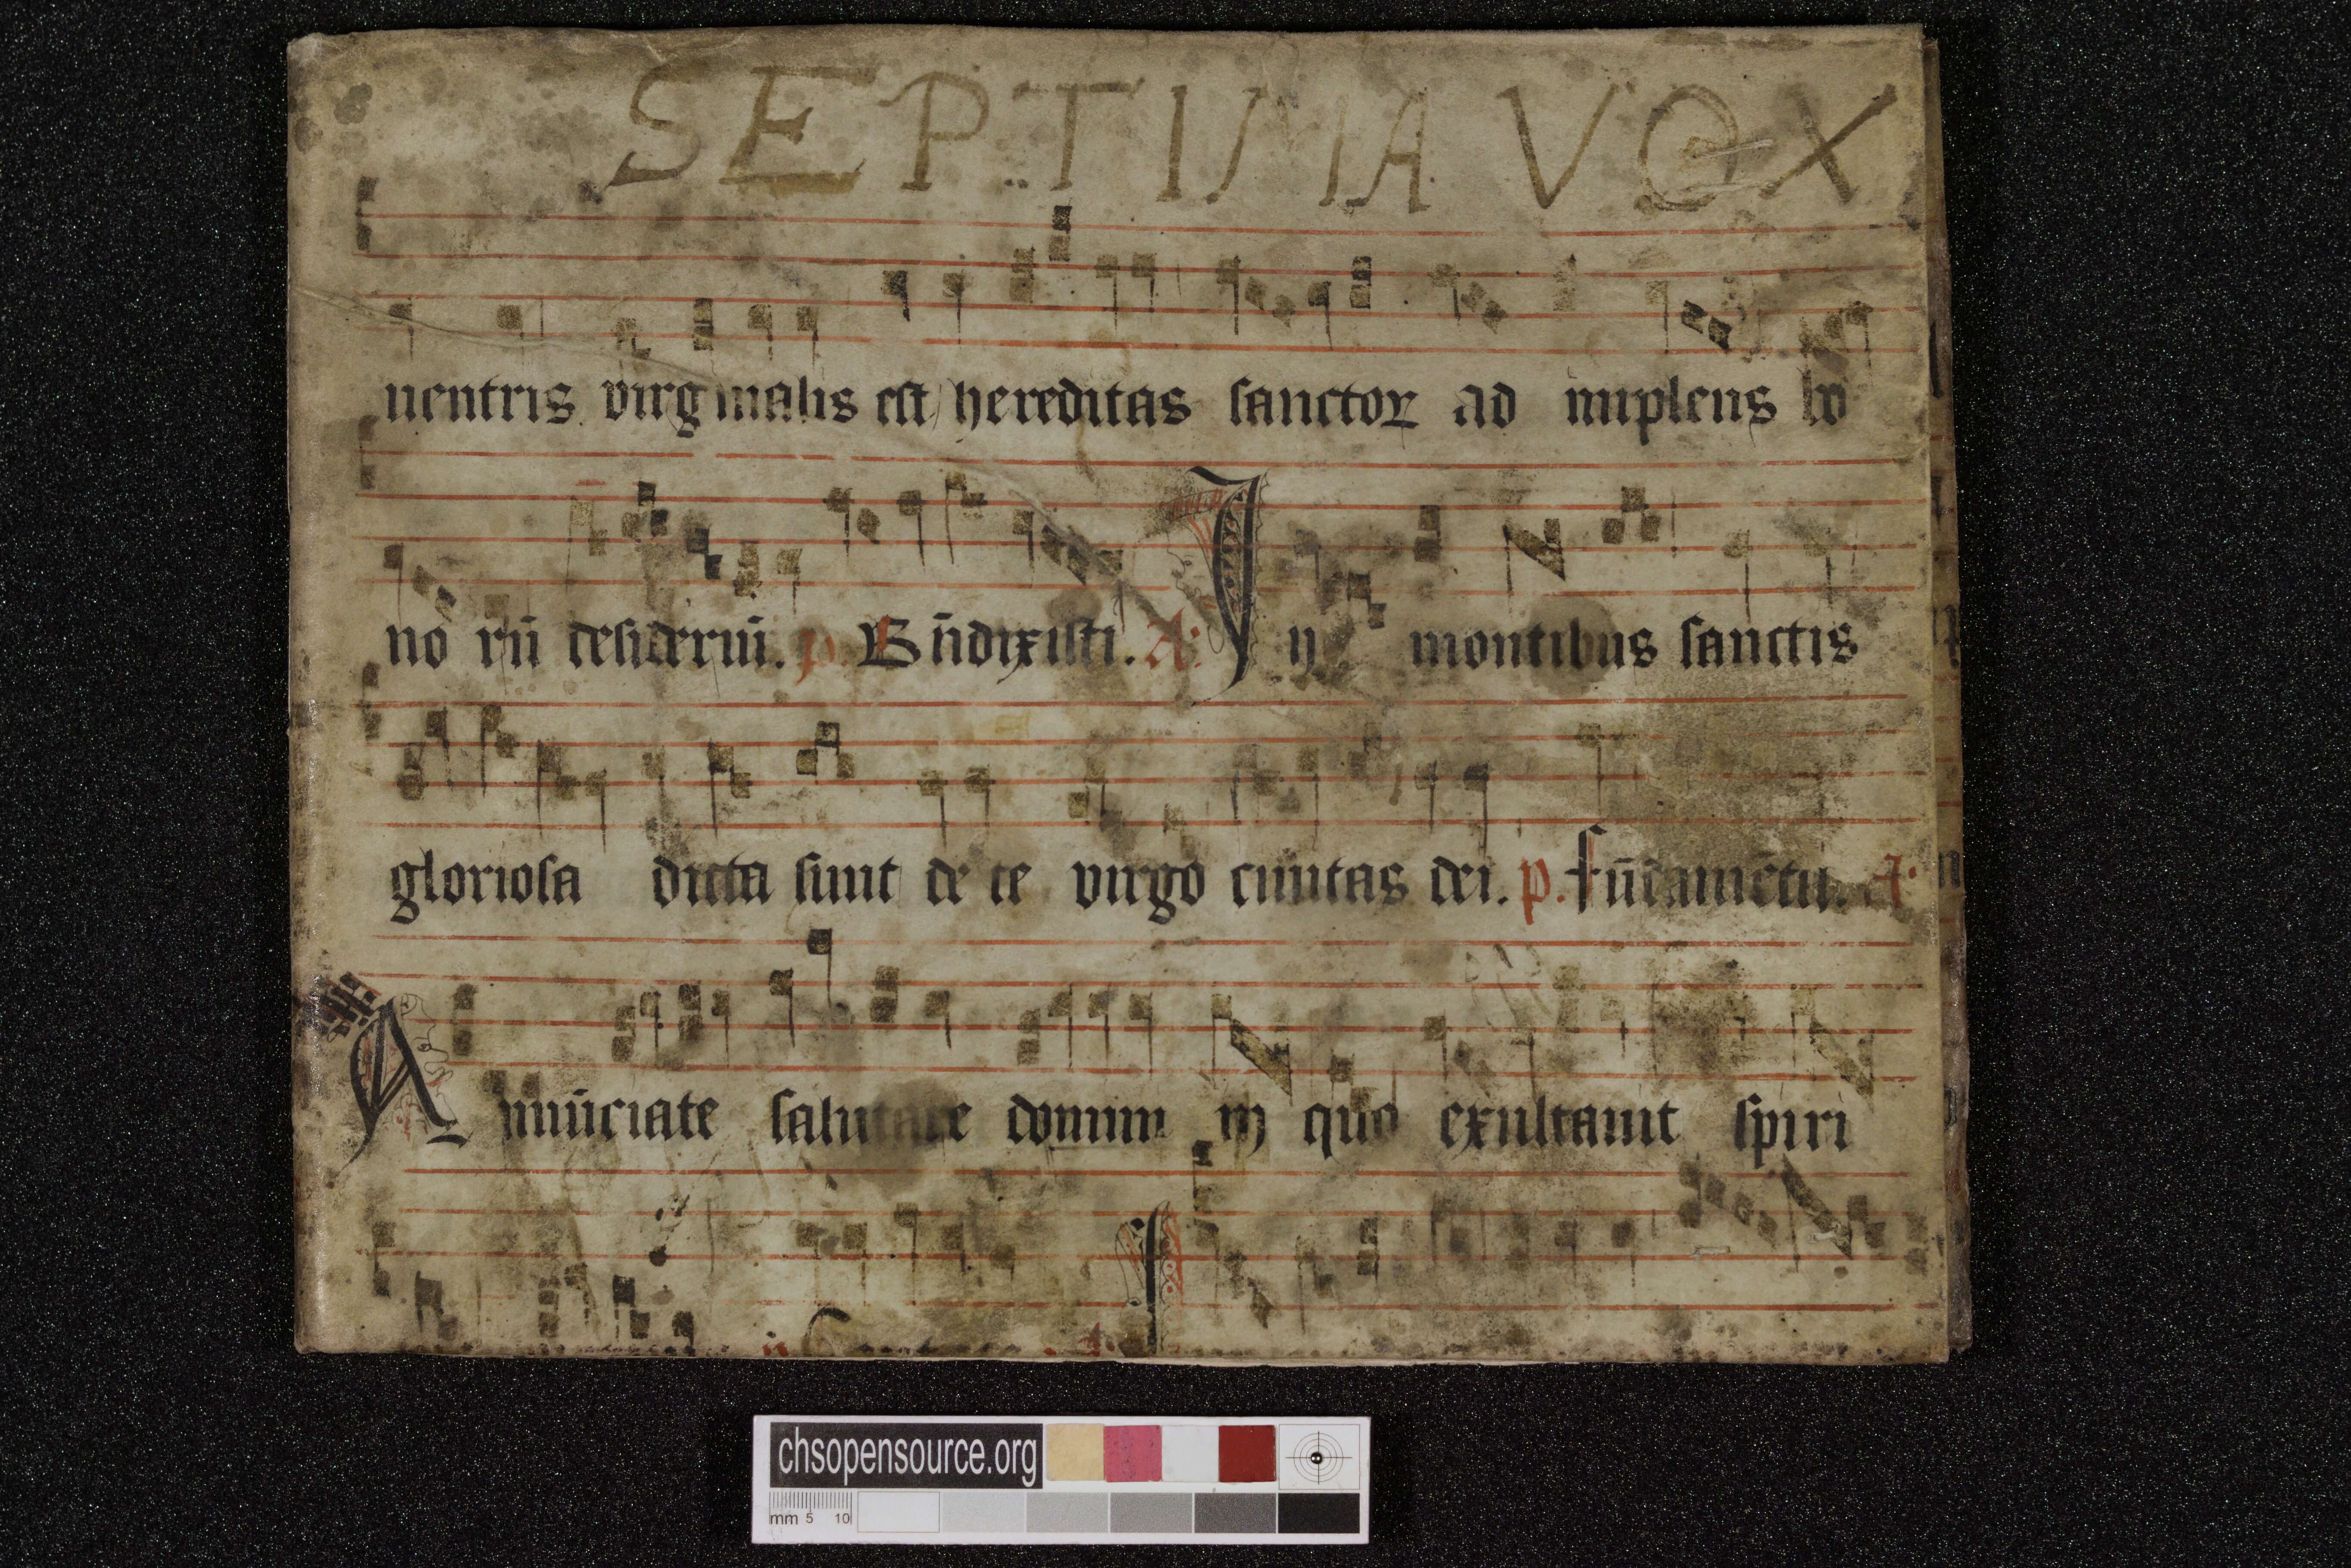 SEPTIMA VOX
uentris virginalis est hereditas sanctoꝝ ad implens bo
no rū desideriū. p. Bn̄dixisti. A: In montibus sanctis
gloriosa dicta sunt de te virgo ciuitas dei. p. fūdamētu. A:
Annūciate salutare domini in quo exultauit spiri
chsopensource.org
mm 5 10